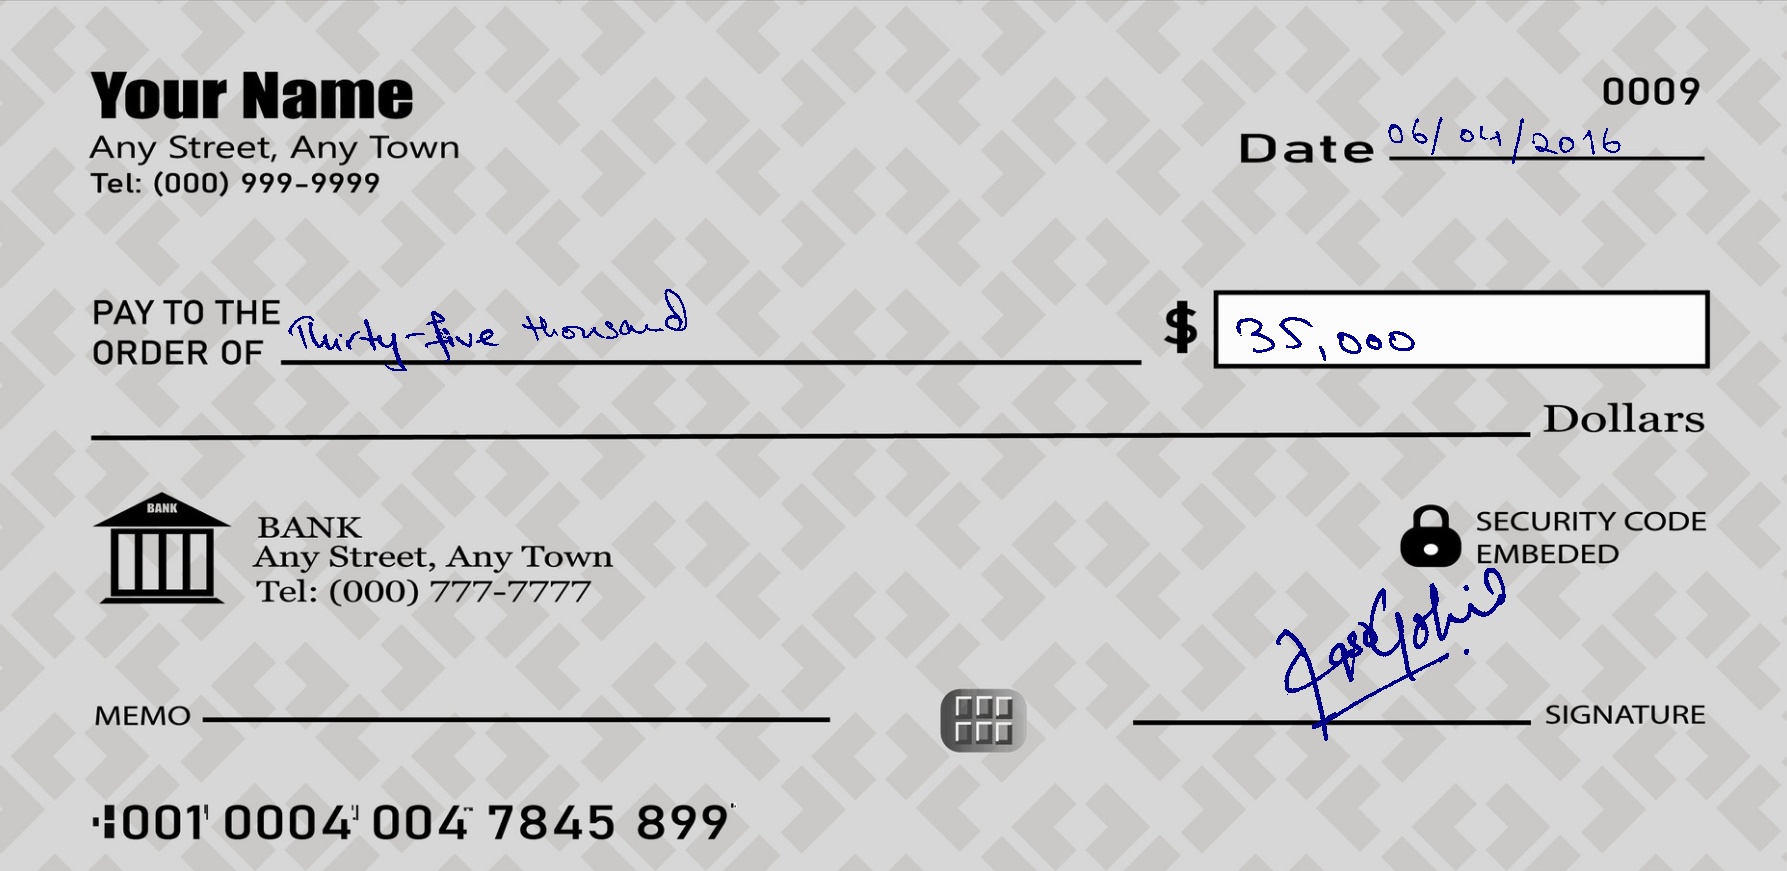 Your Name
0009
Any Street, Any Town
Date 06/04/2016
Tel: (000) 999-9999
PAY TO THE
ORDER OF Thirty-five thousand $ 35,000
Dollars
BANK
BANK
Any Street, Any Town
Tel: (000) 777-7777
SECURITY CODE
EMBEDED
MEMO
SIGNATURE
001 0004 004 7845 899